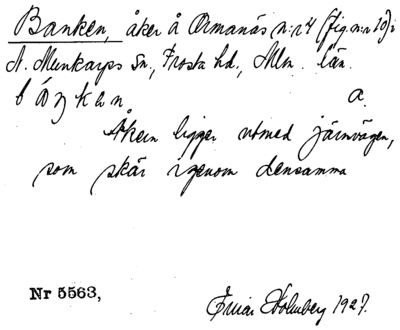 Banken, åker å Ormanäs n:r 4 (fig. n:r 10) i
N. Munkarps sn., Frosta hd., Mlm. län.
a.
Åkern ligger utmed järnvägen,
som skär igenom densamma
Nr 5563,
Einar Holmberg 1927.